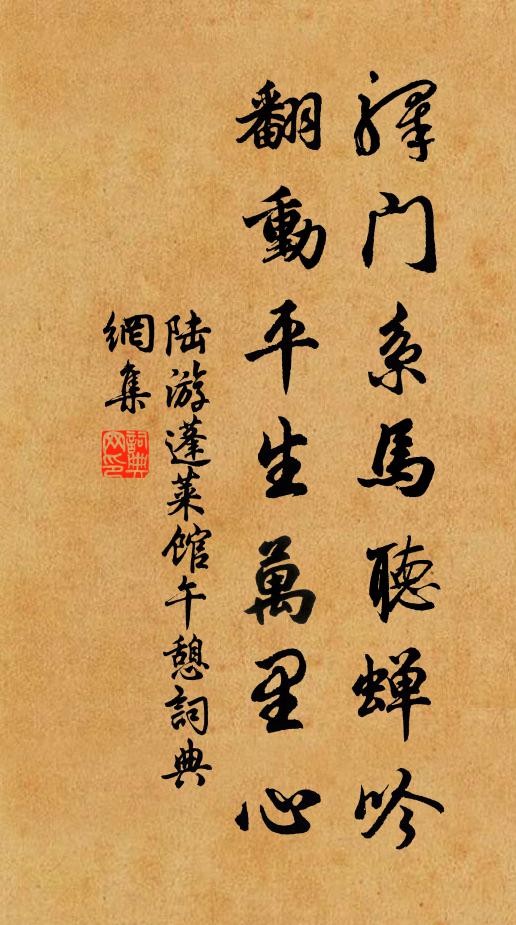 驛门系馬聽蝉吟
翻動平生萬里心
陆游蓬莱馆午憩詞典
網集
詞典
网印